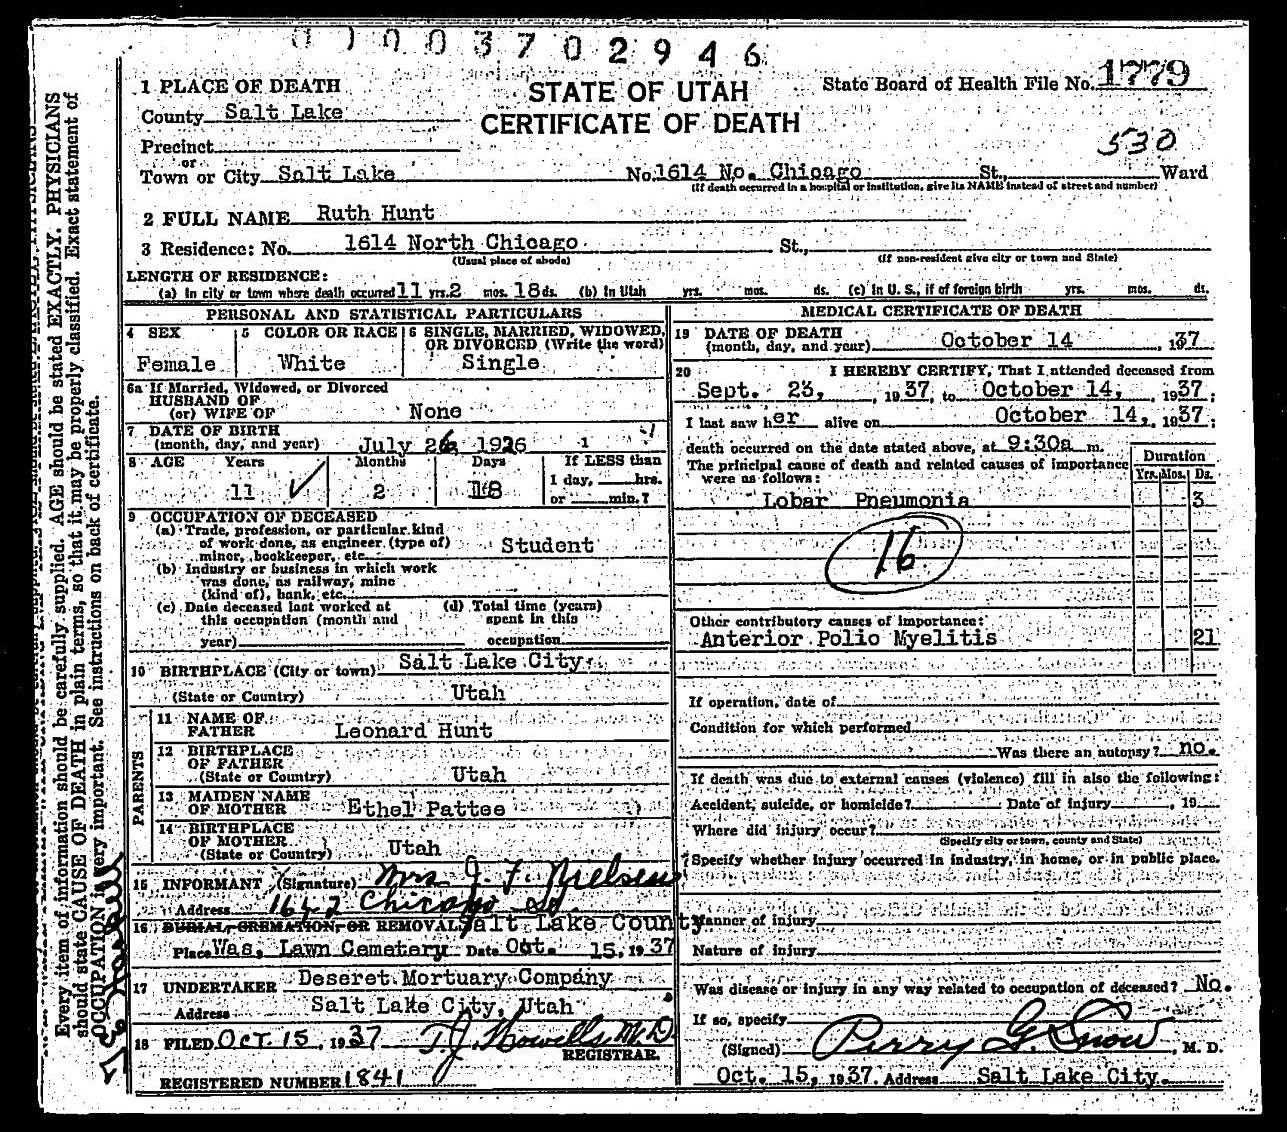 0 1 0 0 3 7 0 2 9 4 6
1 PLACE OF DEATH
STATE OF UTAH
CERTIFICATE OF DEATH
State Board of Health File No. 1779
County Salt Lake
Precinct
or
530
Town or City Salt Lake No. 1614 No. Chicago St., Ward
(If death occurred in a hospital or institution, give its NAME instead of street and number)
2 FULL NAME Ruth Hunt
3 Residence: No. 1614 North Chicago St.,
(Usual place of abode) (If non-resident give city or town and State)
LENGTH OF RESIDENCE:
(a) In city or town where death occurred 11 yrs. 2 mos. 18 ds. (b) In Utah yrs. mos. ds. (c) In U. S., if of foreign birth yrs. mos. ds.
PERSONAL AND STATISTICAL PARTICULARS
4 SEX 5 COLOR OR RACE 6 SINGLE, MARRIED, WIDOWED, OR DIVORCED (Write the word)
Female White Single
6a If Married, Widowed, or Divorced
HUSBAND OF
(or) WIFE OF None
7 DATE OF BIRTH
(month, day, and year) July 26, 1926
8 AGE Years Months Days If LESS than
1 day, hrs.
11 2 18 or min.?
9 OCCUPATION OF DECEASED
(a) Trade, profession, or particular kind
of work done, as engineer (type of) Student
miner, bookkeeper, etc.
(b) Industry or business in which work
was done, as railway, mine
(kind of), bank, etc.
(c) Date deceased last worked at (d) Total time (years)
this occupation (month and spent in this
year) occupation
10 BIRTHPLACE (City or town) Salt Lake City
(State or Country) Utah
PARENTS
11 NAME OF
FATHER Leonard Hunt
12 BIRTHPLACE
OF FATHER
(State or Country) Utah
13 MAIDEN NAME
OF MOTHER Ethel Pattee
14 BIRTHPLACE
OF MOTHER
(State or Country) Utah
15 INFORMANT (Signature) Mrs J. F. Nielsen
Address 1642 Chicago St.
16 BURIAL, CREMATION, OR REMOVAL Salt Lake County
Place Was. Lawn Cemetery Date Oct. 15, 1937
17 UNDERTAKER Deseret Mortuary Company
Address Salt Lake City, Utah
18 FILED Oct. 15, 1937 T. J. Howells M.D.
REGISTRAR.
REGISTERED NUMBER 1841
MEDICAL CERTIFICATE OF DEATH
19 DATE OF DEATH
(month, day, and year) October 14, 1937
20 I HEREBY CERTIFY, That I attended deceased from
Sept. 23, 1937, to October 14, 1937;
I last saw her alive on October 14, 1937;
death occurred on the date stated above, at 9:30a m.
The principal cause of death and related causes of importance
were as follows:
Duration
Yrs. Mos. Ds.
Lobar Pneumonia 3
16
Other contributory causes of importance:
Anterior Polio Myelitis 21
If operation, date of
Condition for which performed
Was there an autopsy? no.
If death was due to external causes (violence) fill in also the following:
Accident, suicide, or homicide? Date of injury , 19
Where did injury occur?
(Specify city or town, county and State)
Specify whether injury occurred in industry, in home, or in public place.
Manner of injury
Nature of injury
Was disease or injury in any way related to occupation of deceased? No.
If so, specify
(Signed) Perry G. Snow, M. D.
Oct. 15, 1937. Address Salt Lake City.
Every item of information should be carefully supplied. AGE should be stated EXACTLY. PHYSICIANS
should state CAUSE OF DEATH in plain terms, so that it may be properly classified. Exact statement of
OCCUPATION is very important. See instructions on back of certificate.